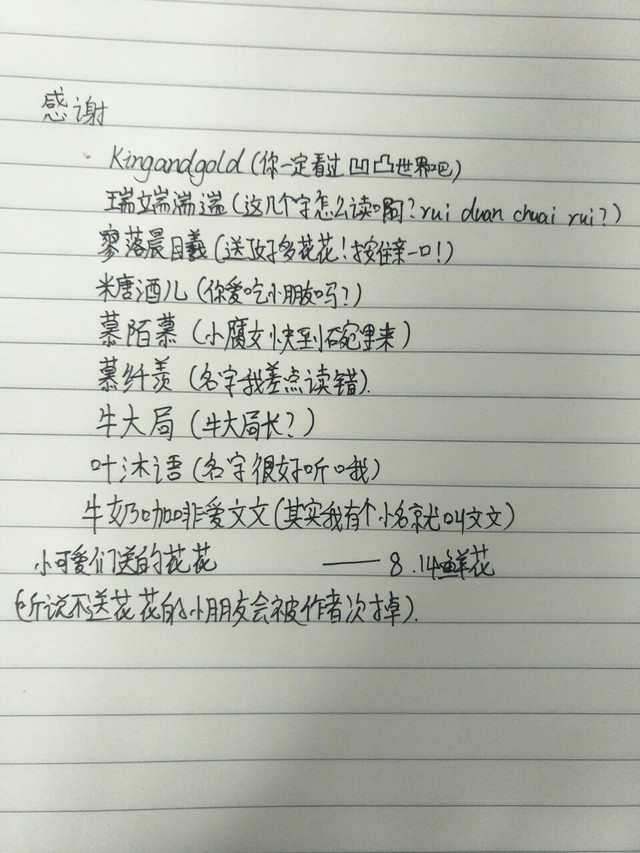 感谢
Kingandgold(你一定看过凹凸世界吧)
瑞端湍遄(这几个字怎么读啊?rui duan chuai rui?)
寥落晨曦(送了好多花花!按住亲一口!)
米唐酒儿(你爱吃小朋友吗?)
慕陌慕(小腐女快到碗里来)
慕纤羡(名字我差点读错).
牛大局(牛大局长?)
叶沐语(名字很好听哦)
牛奶咖啡爱文文(其实我有个小名就叫文文)
小可爱们送的花花 —— 8.14鲜花
(听说不送花花的小朋友会被作者次掉).